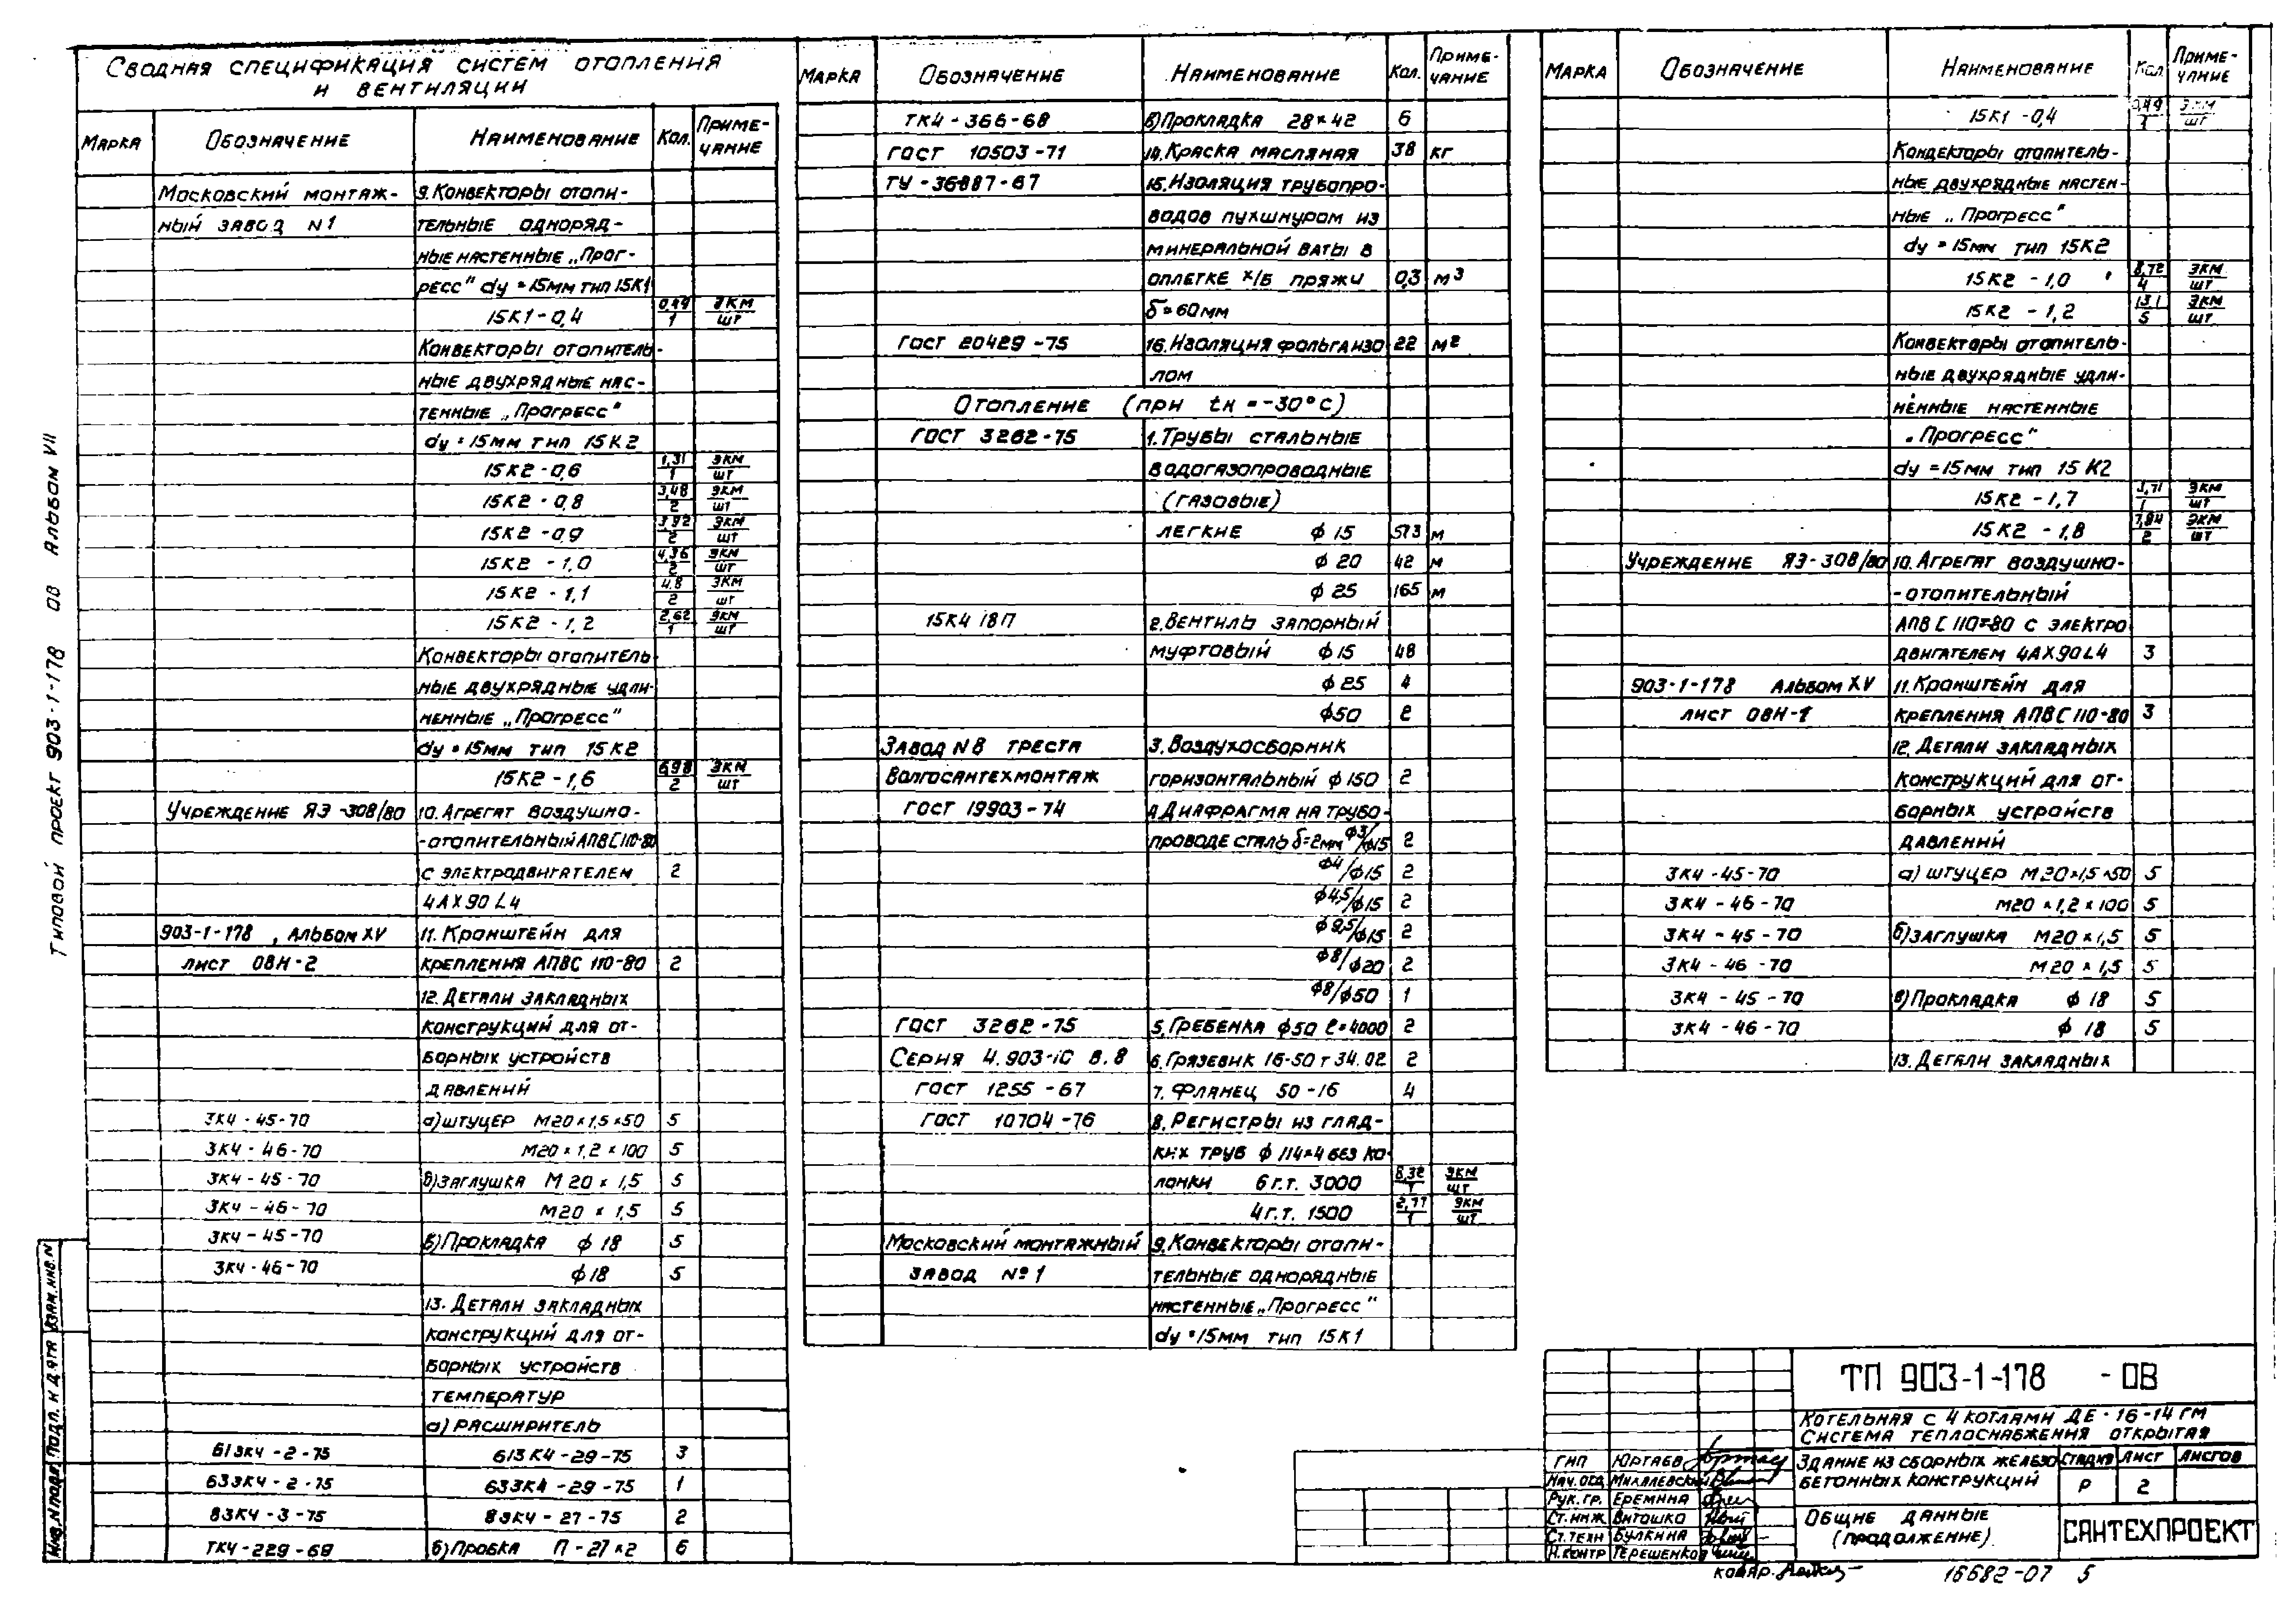 Сводная спецификация систем отопления
и вентиляции
Марка Обозначение Наименование Кол. Приме-
чание
Московский монтаж- 9. Конвекторы отопи-
ный завод N1 тельные одноряд-
ные настенные „Прог-
ресс" dy = 15мм тип 15К1
15К1-0,4 0,49/1 ЭКМ/шт
Конвекторы отопитель-
ные двухрядные нас-
тенные „Прогресс"
dy = 15мм тип 15К2
15К2-0,6 1,31/1 ЭКМ/шт
15К2-0,8 3,48/2 ЭКМ/шт
15К2-0,9 3,92/2 ЭКМ/шт
15К2-1,0 4,36/2 ЭКМ/шт
15К2-1,1 4,8/2 ЭКМ/шт
15К2-1,2 2,62/1 ЭКМ/шт
Конвекторы отопитель-
ные двухрядные удли-
ненные „Прогресс"
dy = 15мм тип 15К2
15К2-1,6 6,98/2 ЭКМ/шт
Учреждение ЯЭ-308/80 10. Агрегат воздушно-
-отопительный АПВС 110-80
с электродвигателем 2
4АХ90L4
903-1-178, Альбом XV 11. Кронштейн для
лист ОВН-2 крепления АПВС 110-80 2
12. Детали закладных
конструкций для от-
борных устройств
давлений
ЗК4-45-70 а) штуцер М20×1,5×50 5
ЗК4-46-70 М20×1,2×100 5
ЗК4-45-70 б) заглушка М20×1,5 5
ЗК4-46-70 М20×1,5 5
ЗК4-45-70 в) Прокладка ф 18 5
ЗК4-46-70 ф 18 5
13. Детали закладных
конструкций для от-
борных устройств
температур
а) расширитель
613К4-2-75 613К4-29-75 3
633К4-2-75 633К4-29-75 1
83К4-3-75 83К4-27-75 2
ТК4-229-69 б) Пробка П-27×2 6
Марка Обозначение Наименование Кол. Приме-
чание
ТК4-366-68 в) Прокладка 28×42 6
ГОСТ 10503-71 14. Краска масляная 38 кг
ТУ-36887-67 15. Изоляция трубопро-
водов пухшнуром из
минеральной ваты в
оплетке х/б пряжи 0,3 м³
δ=60мм
ГОСТ 20429-75 16. Изоляция фольгаизо 22 м²
лом
Отопление (при tн =-30°С)
ГОСТ 3262-75 1. Трубы стальные
водогазопроводные
(газовые)
легкие ф 15 573 м
ф 20 42 м
ф 25 165 м
15К4 18П 2. Вентиль запорный
муфтовый ф 15 48
ф 25 4
ф50 2
Завод N8 треста 3. Воздухосборник
Волгосантехмонтаж горизонтальный ф 150 2
ГОСТ 19903-74 4. Диафрагма на трубо-
проводе сталь δ=2мм ф3/ф15 2
ф4/ф15 2
ф4,5/ф15 2
ф9,5/ф15 2
ф8/ф20 2
ф8/ф50 1
ГОСТ 3262-75 5. Гребенка ф50 ℓ=4000 2
Серия 4.903-10 в.8 6. Грязевик 16-50 т 34.02 2
ГОСТ 1255-67 7. Фланец 50-16 4
ГОСТ 10704-76 8. Регистры из глад-
ких труб ф 114×4 без ко-
лонки 6 г.т. 3000 8,32/1 ЭКМ/шт
4 г.т. 1500 2,77/1 ЭКМ/шт
Московский монтажный 9. Конвекторы отопи-
завод №1 тельные однорядные
настенные „Прогресс"
dy = 15мм тип 15К1
Марка Обозначение Наименование Кол. Приме-
чание
15К1-0,4 0,49/1 ЭКМ/шт
Конвекторы отопитель-
ные двухрядные настен-
ные „Прогресс"
dy = 15мм тип 15К2
15К2-1,0 8,72/4 ЭКМ/шт
15К2-1,2 13,1/5 ЭКМ/шт
Конвекторы отопитель-
ные двухрядные удли-
ненные настенные
„Прогресс"
dy = 15мм тип 15К2
15К2-1,7 3,71/1 ЭКМ/шт
15К2-1,8 7,84/2 ЭКМ/шт
Учреждение ЯЭ-308/80 10. Агрегат воздушно-
-отопительный
АПВС 110-80 с электро
двигателем 4АХ90L4 3
903-1-178 Альбом XV 11. Кронштейн для
лист ОВН-1 крепления АПВС 110-80 3
12. Детали закладных
конструкций для от-
борных устройств
давлений
ЗК4-45-70 а) штуцер М20×1,5×50 5
ЗК4-46-70 М20×1,2×100 5
ЗК4-45-70 б) заглушка М20×1,5 5
ЗК4-46-70 М20×1,5 5
ЗК4-45-70 в) Прокладка ф 18 5
ЗК4-46-70 ф 18 5
13. Детали закладных
Типовой проект 903-1-178 ОВ Альбом VII
Инв. N подл. Подп. и дата Взам. инв. N
ТП 903-1-178 -ОВ
Котельная с 4 котлами ДЕ-16-14 ГМ
Система теплоснабжения открытая
ГИП Юртаев
Нач. отд. Михалевский
Рук. гр. Еремина
Ст. инж. Витошко
Ст. техн Булкина
Н. контр Терешенков
Здание из сборных железо
бетонных конструкций
Стадия Лист Листов
Р 2
Общие данные
(продолжение)
САНТЕХПРОЕКТ
копир.
16682-07 5